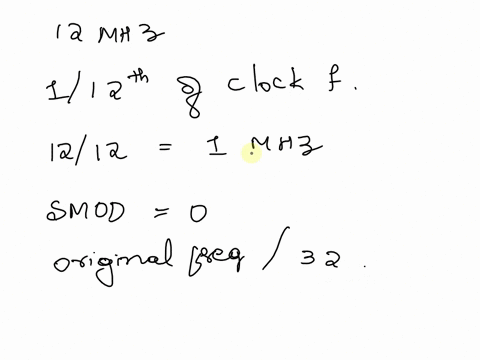 12 MHz
1/12th of clock f.
12/12 = 1 MHz
SMOD = 0
original freq / 32.